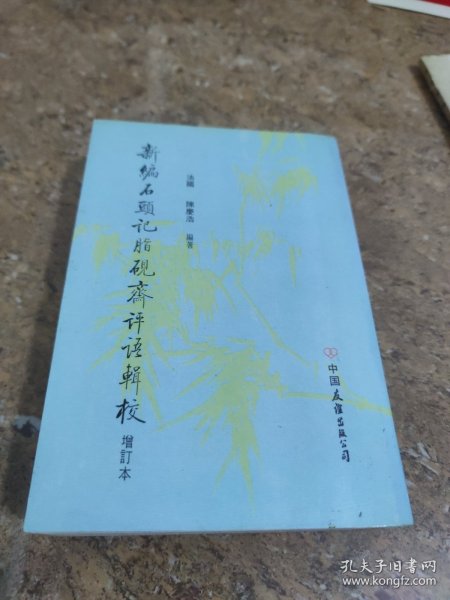 新編石頭記脂硯齋評語輯校
增訂本
法國 陳慶浩 編著
中国友谊出版公司
孔夫子旧书网
www.kongfz.com